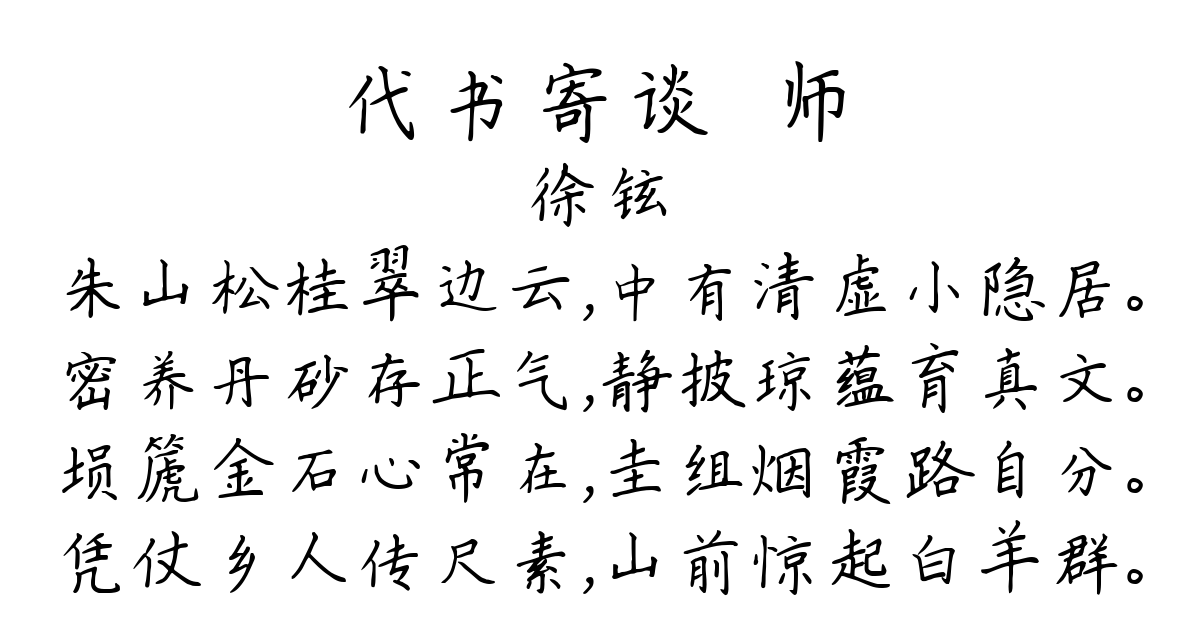 代书寄谈 师
徐铉
朱山松桂翠边云,中有清虚小隐居。
密养丹砂存正气,静披琼蕴育真文。
埙篪金石心常在,圭组烟霞路自分。
凭仗乡人传尺素,山前惊起白羊群。